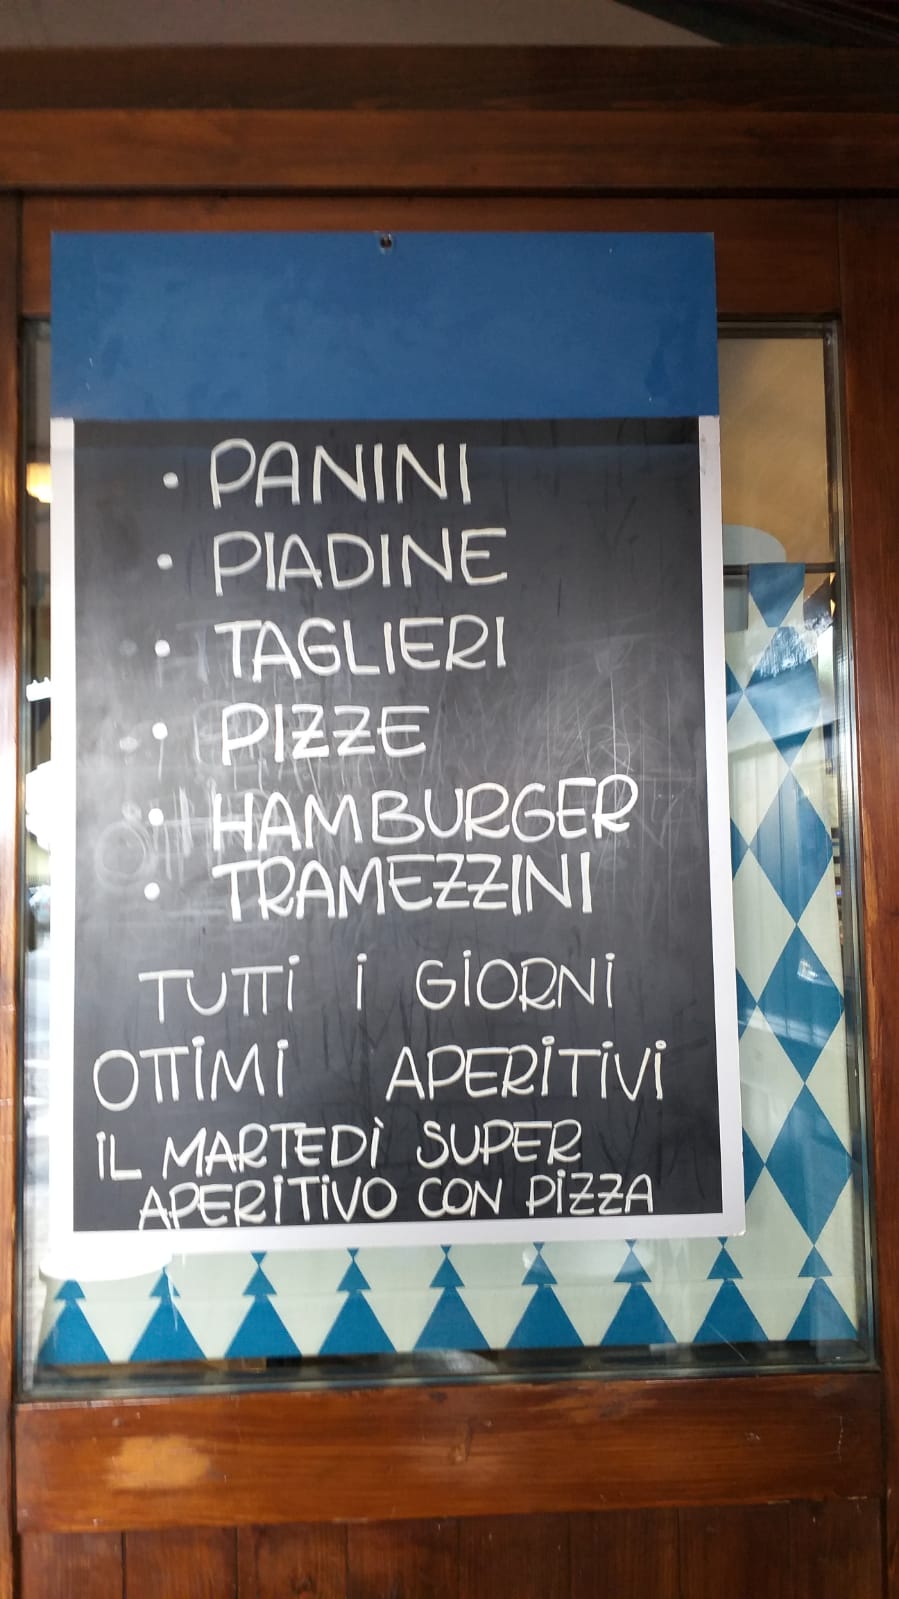 • PANINI
• PIADINE
• TAGLIERI
• PIZZE
• HAMBURGER
• TRAMEZZINI
TUTTI I GIORNI
OTTIMI APERITIVI
IL MARTEDÌ SUPER
APERITIVO CON PIZZA